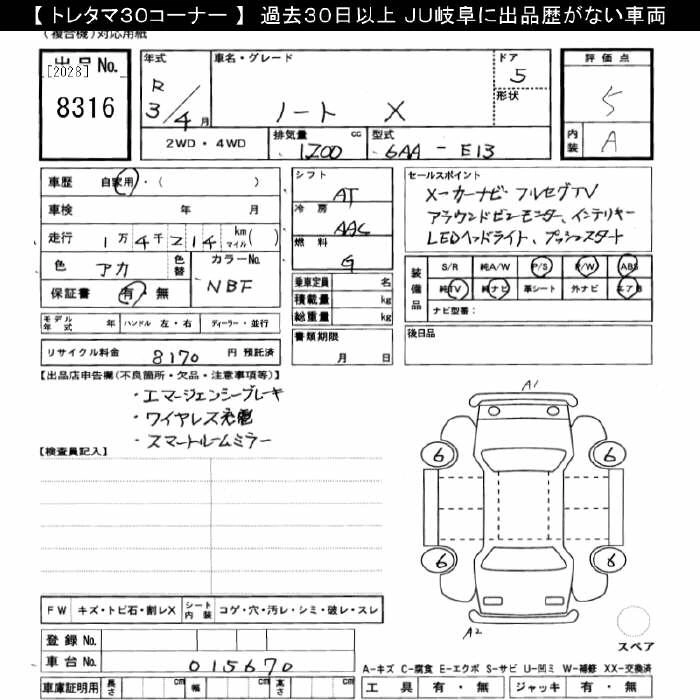 【 トレタマ30コーナー 】 過去30日以上 JU岐阜に出品歴がない車両
(複合機)対応用紙
出品No.
[2028]
8316
年式
R 3/4月
車名・グレード
ノート X
ドア
5
形状
評価点
5
内装
A
2WD・4WD
排気量 cc
1200
型式
6AA - E13
車歴 自家用・( )
車検 年 月
走行 1万4千214 km マイル( )
色 アカ 色替
カラーNo. NBF
保証書 有・無
シフト
AT
冷房
AAC
燃料
G
乗車定員 名
積載量 kg
総重量 kg
セールスポイント
メーカーナビ フルセグTV
アラウンドビューモニター、インテリキー
LEDヘッドライト、プッシュスタート
装備品
S/R 純A/W P/S P/W ABS
純TV 純ナビ 革シート 外ナビ エアB
ナビ型番:
モデル年式 年 ハンドル 左・右 ディーラー・並行
書類期限
月 日
後日品
リサイクル料金 8170 円 預託済
【出品店申告欄(不良箇所・欠品・注意事項等)】
・エマージェンシーブレーキ
・ワイヤレス充電
・スマートルームミラー
【検査員記入】
A1
6 6
6 6
A2
スペア
FW キズ・トビ石・割レX シート内装 コゲ・穴・汚レ・シミ・破レ・スレ
登録No.
車台No. 015670
車庫証明用 長さ cm 幅 cm 高さ cm
A-キズ C-腐食 E-エクボ S-サビ U-凹ミ W-補修 XX-交換済
工具 有・無 ジャッキ 有・無